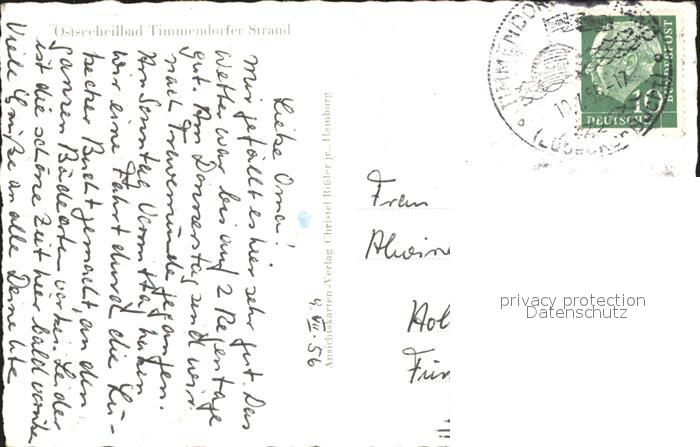 Ostseeheilbad Timmendorfer Strand
Liebe Oma!
Mir gefällt es hier sehr gut. Das
Wetter war bis auf 2 Regentage
gut. Am Donnerstag sind wir
nach Travemünde gegangen.
Am Sonntag Vormittag haben
wir eine Fahrt durch die Lü-
becker Bucht gemacht, an den
ganzen Badeorten vorbei. Leider
ist die schöne Zeit hier bald vorüber
Viele Grüße an alle Deine Ute
4.VII.56
Ansichtskarten-Verlag Christel Rißler jr., Hamburg
Frau
DEUTSCHE
BUNDESPOST
10
privacy protection
Datenschutz